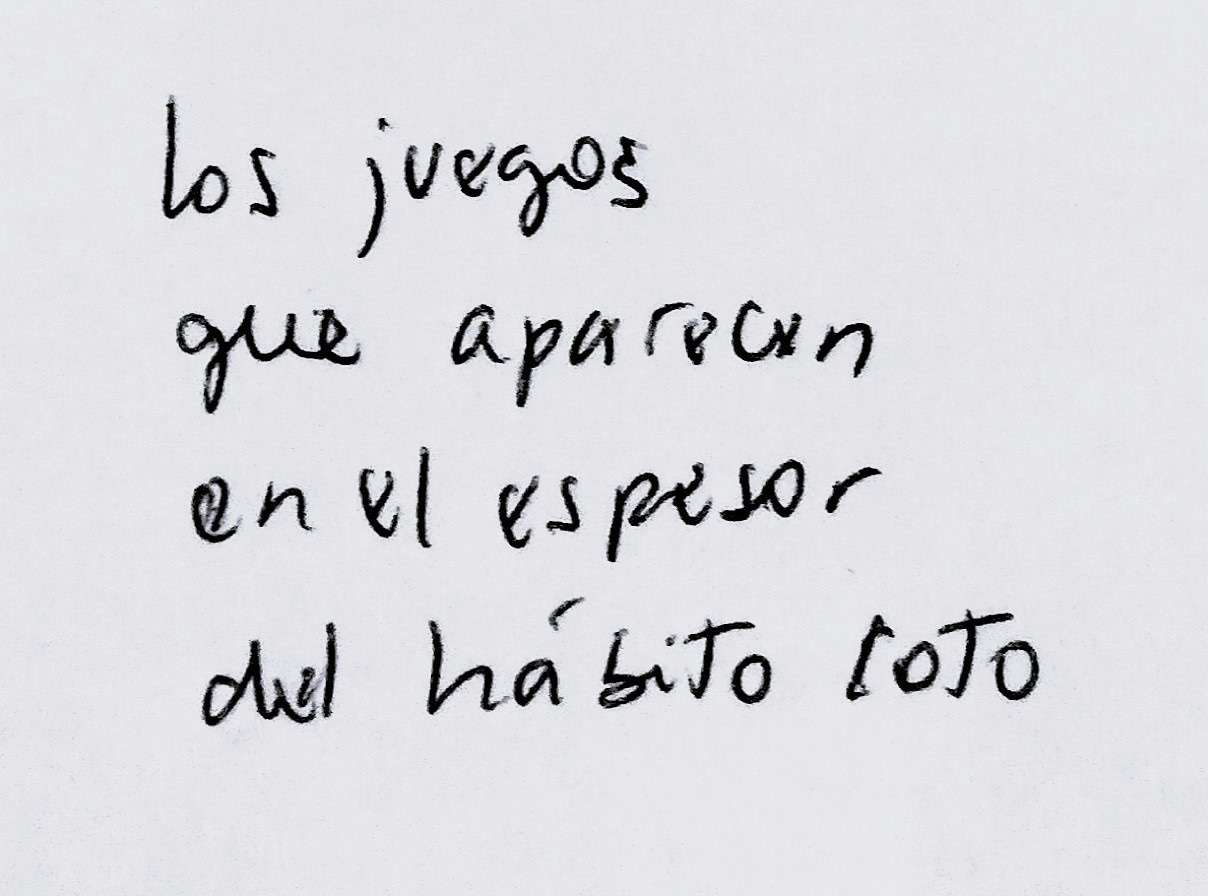 los juegos
que aparecen
en el espesor
del hábito roto